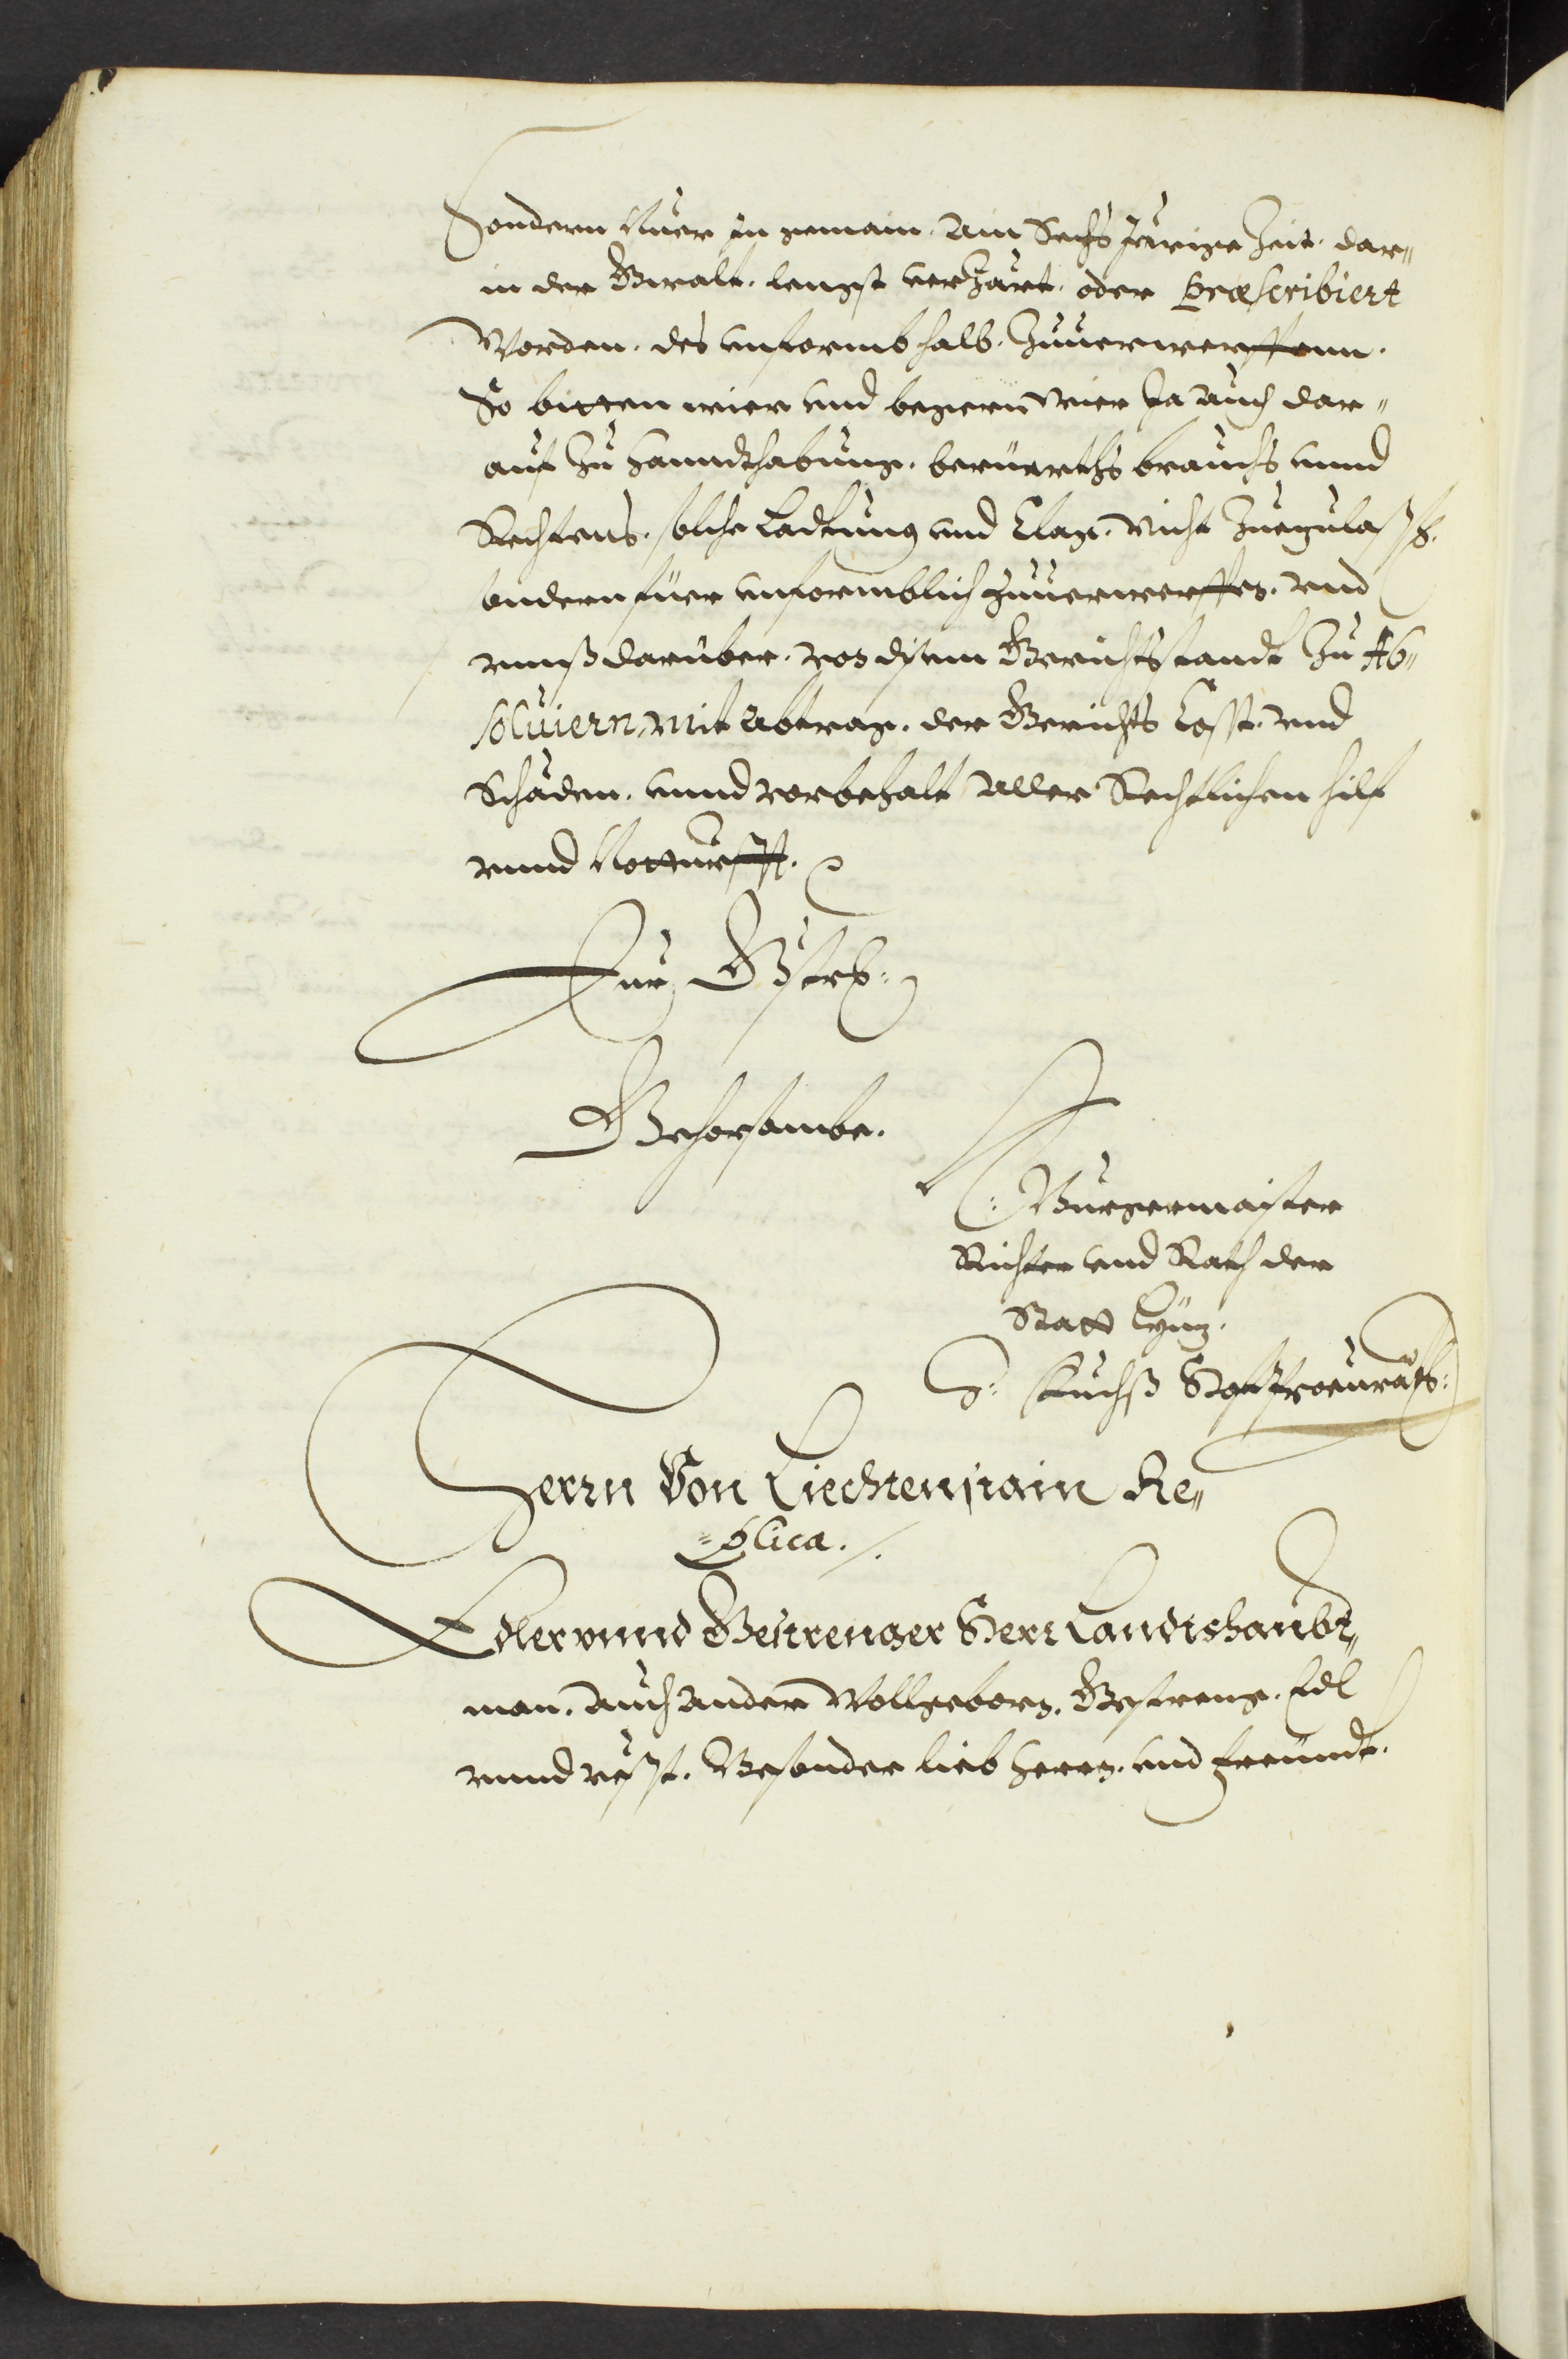 Sondern Nuer in gemain. Ain Sechs Järige Zeit. dar„
in der Gwalt. lengst verJärt. oder præscribiert
Worden. des unformbs halb. Zuuerwerffenn.
So bitten wier und begern wier Ja auch dar„
auf Zu Hanndthabung. berüerths brauchs unnd
Rechtens. solche Ladtung und Clag. Nicht Zuegulassen.
sondern fuer unformblich Zuuerwerffen. und
unnß darüber. von disem Gerichtsstandt Zu Ab„
solviern, mit Abtrag. der Gerichts Cosst. und
Schäden. unnd vorbehalt Aller Rechtlichen hilf
unnd Notturfft.
Eur Gstr:
Gehorsambe.
N: Burgermaister
Richter und Rath der
Statt Lynz.
Fuchß Hofprocurator:
Herrn Von Liechtenstain Re„
=plica./.
Edler unnd Gestrenger Herr Landtshaubt„
man. Auch Ander Wollgeborn. Gestreng. Edl
unnd vesst. Besonder lieb Herrn. und freundt.